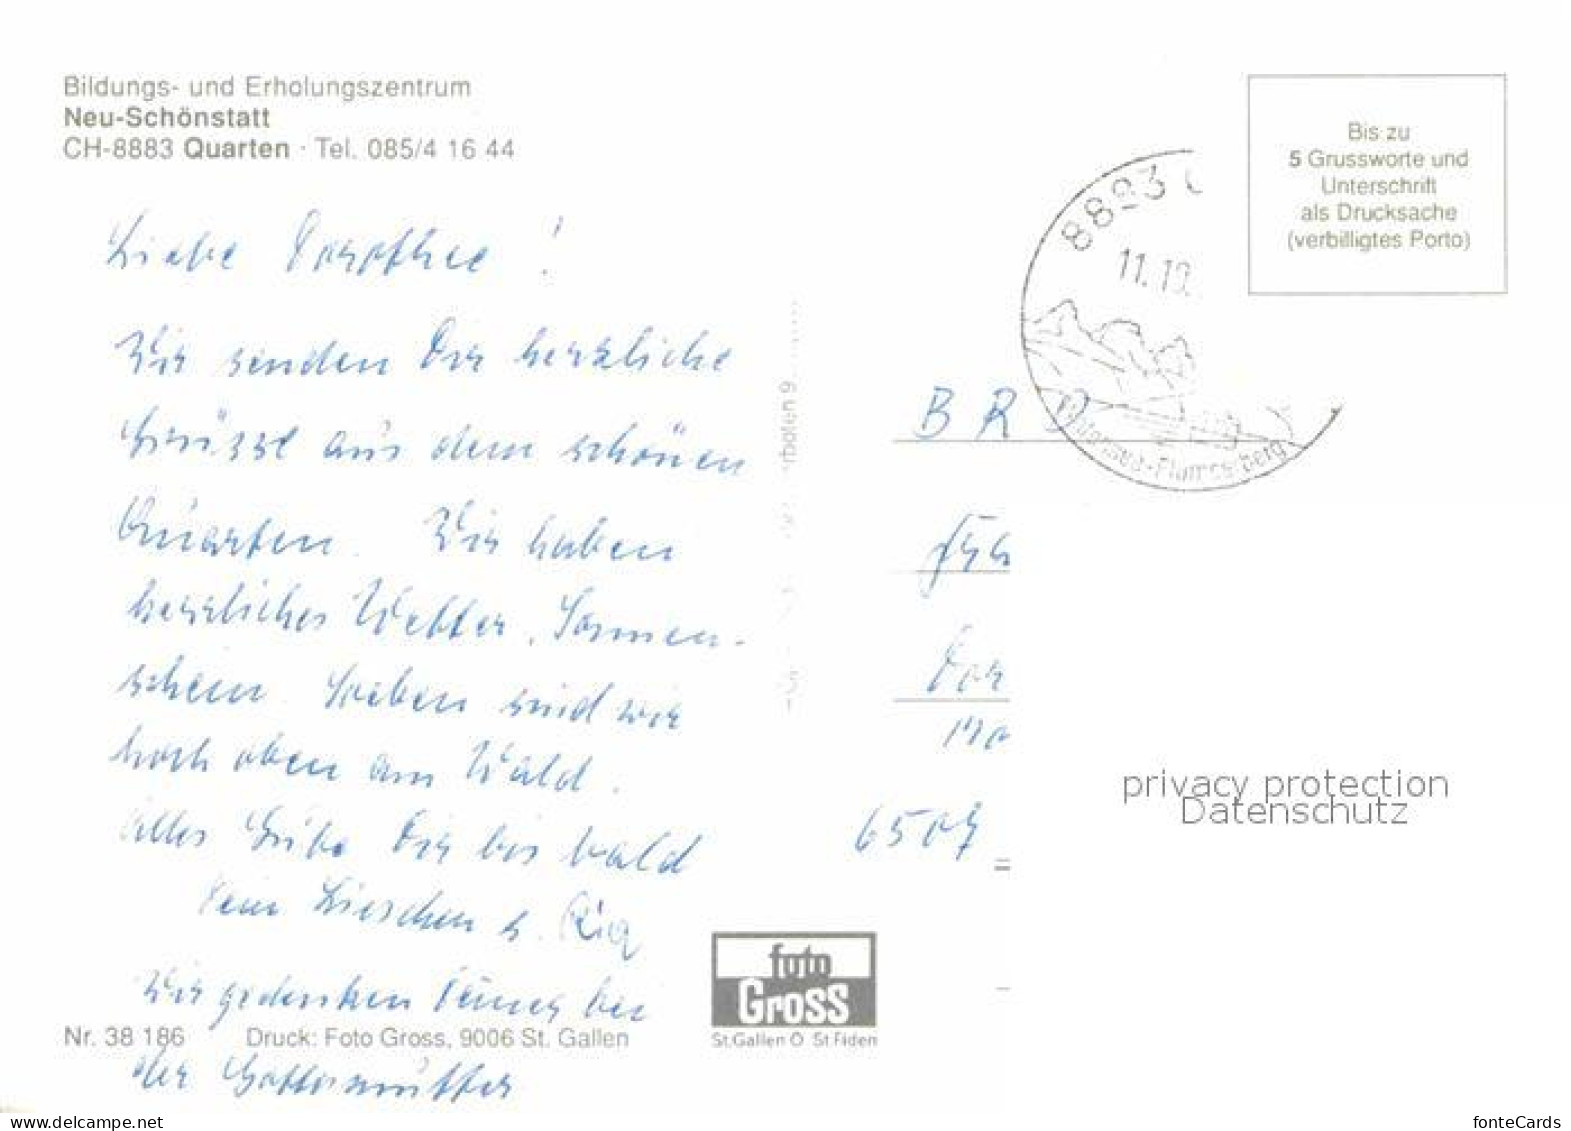 Bildungs- und Erholungszentrum
Neu-Schönstatt
CH-8883 Quarten · Tel. 085/4 16 44
Bis zu
5 Grussworte und
Unterschrift
als Drucksache
(verbilligtes Porto)
8883
11.10.
Flumserberg
Liebe Dorothee !
Wir senden Dir herzliche
Grüsse aus dem schönen
Quarten. Wir haben
herrliches Wetter, Sonnen-
schein. Soeben sind wir
hoch oben am Wald.
Alles Liebe Dir bis bald
Dein Lieschen
Wir gedenken Deiner bei
der Gottesmutter
BRD
6507
privacy protection
Datenschutz
foto
Gross
St.Gallen O St Fiden
Nr. 38 186 Druck: Foto Gross, 9006 St. Gallen
www.delcampe.net
fonteCards